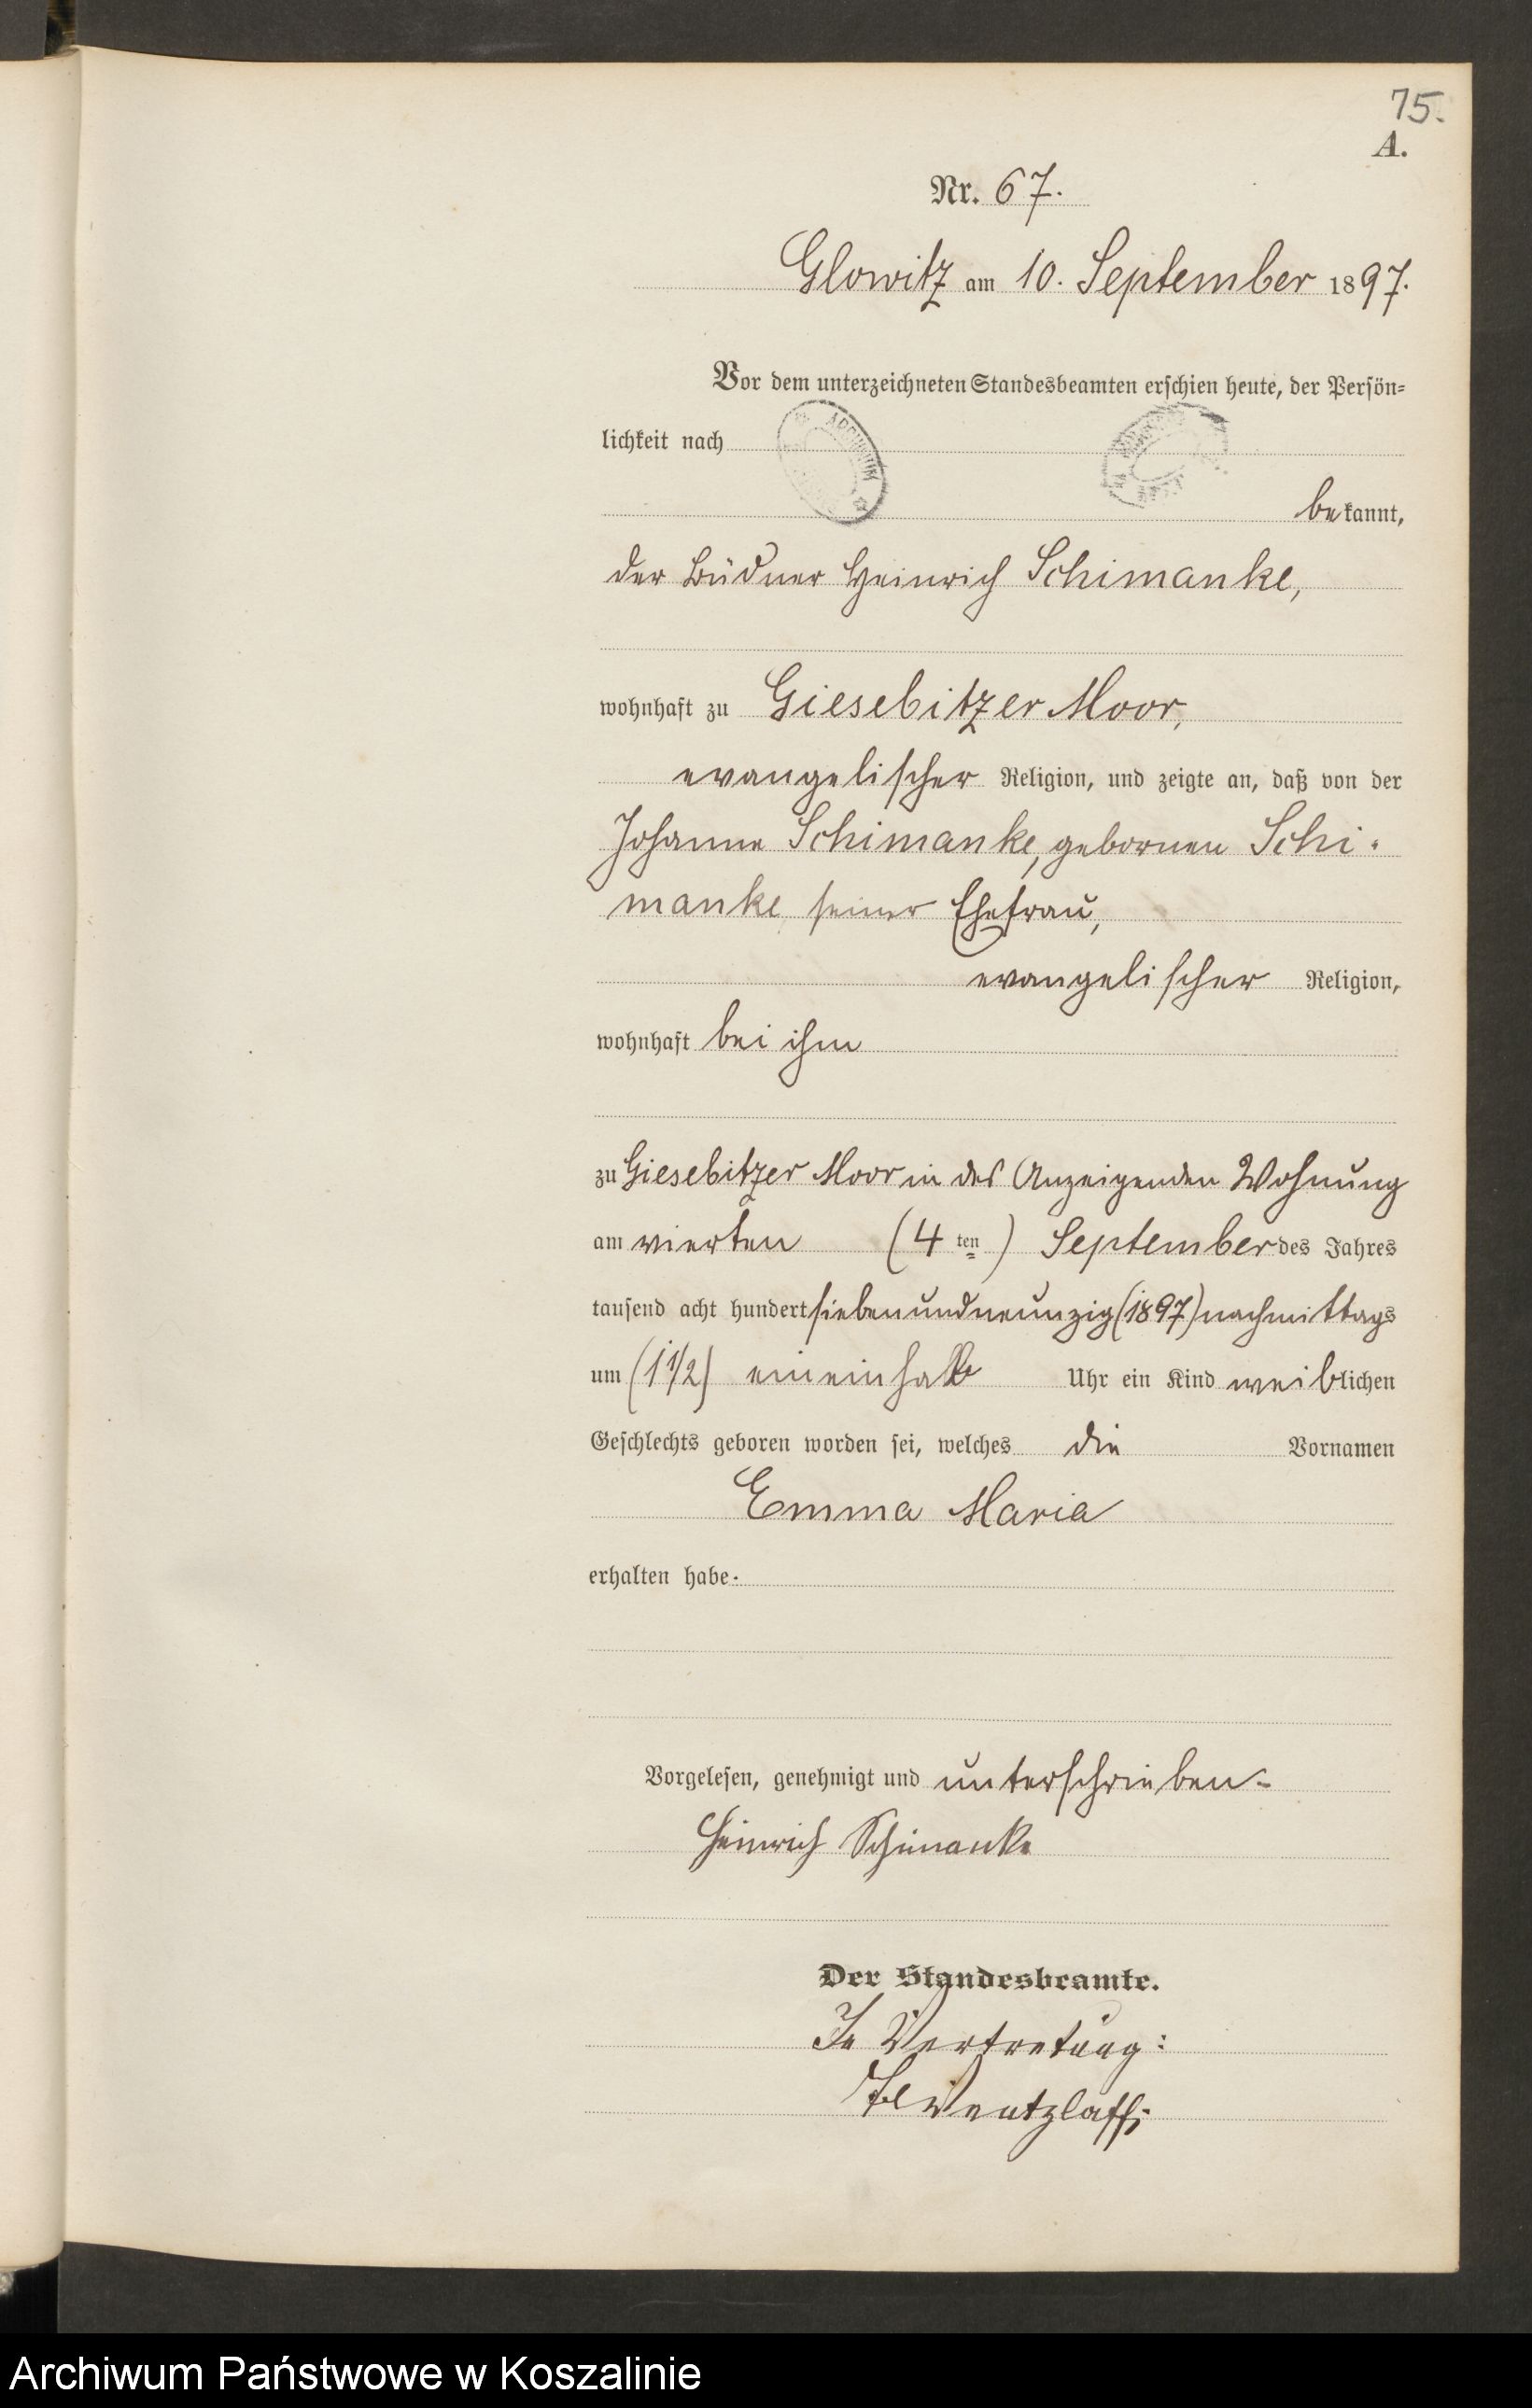 75.
A.
Nr. 67.
Glowitz am 10. September 1897.
Vor dem unterzeichneten Standesbeamten erschien heute, der Persön=
lichkeit nach
ARCHIWUM
bekannt,
der Büdner Heinrich Schimanke,
wohnhaft zu Giesebitzer Moor,
evangelischer Religion, und zeigte an, daß von der
Johanne Schimanke, gebornen Schi-
manke seiner Ehefrau,
evangelischer Religion,
wohnhaft bei ihm
zu Giesebitzer Moor in des Anzeigenden Wohnung
am vierten (4ten) September des Jahres
tausend acht hundert siebenundneunzig (1897) nachmittags
um (1 1/2) eineinhalb Uhr ein Kind weiblichen
Geschlechts geboren worden sei, welches die Vornamen
Emma Maria
erhalten habe.
Vorgelesen, genehmigt und unterschrieben.
Heinrich Schimanke
Der Standesbeamte.
In Vertretung:
Wentzlaff.
Archiwum Państwowe w Koszalinie